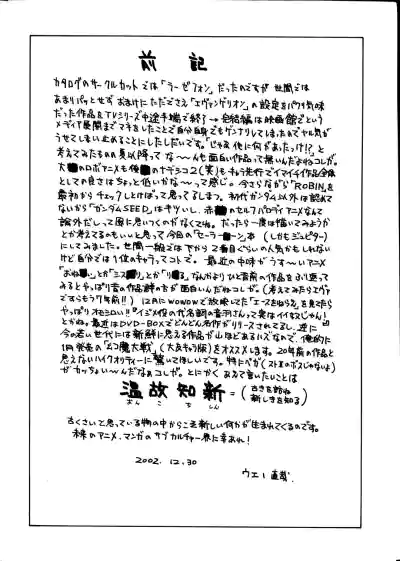 前記
カタログのサークルカットでは「ラーゼフォン」だったのですが世間では
あまりパッとせずおまけにただでさえ「エヴァンゲリオン」の設定をパクリ気味
だった作品をTVシリーズ中途半端で終了→完結編は映画館でという
メディア展開までマネをしたことで自分自身でもゲンナリしてしまったのでヤル気が
うせてしまい止めることにしたしだいです。「じゃあ他に何があったけ!?」と
考えてみたものの夏以降ってな〜んも面白い作品って無いんだよねコレが。
のロボアニメも後のナデシコ2(笑)もキョラ先行でイマイチ作品全体
としての良さはちょっと低いかな〜って感じ。今さらながら「ROBIN」を
最初からチェックしとけばって思ってしまう。初代ガンダム以外は認めて
ないから「ガンダムSEED」はキツいし、赤のセルフパロディアニメなんて
論外だしって風に思いつくのがなくてね。だったら一度は描いてみようか
とか考えてるのもいいっと思って今回の「セーラーーン」本(しかもジュピター)
にしてみました。世間一般では下から2番目ぐらいの人気かもしれない
けど自分では1位のキャラってコトで。最近の中味がうす〜いアニメ
「おね」とか「ミス」とか「りる」なんかよりひと昔前の作品をふり返って
みるとやっぱり昔の作品群の方が面白いんだねコレが。(考えてみたらエヴァ
ですらもう7年前!!)12月にWOWOWで放映してた「エースをねらえ」を見てたら
やっぱりオモシロい!!"イジメ役の代名詞の音羽さんって実はイイ女じゃん!
とかね。最近はDVD-BOXでどんどん名作がリリースされてるし、逆に
今の若い世代には新鮮に思える作品が山ほどあるハズなんで、個的に
1月発売の「ムコ魔大戦」(大友キャラ版)をオススメします。20年前の作品と
思えないハイクオリティーに驚いてほしいです。特にベガ(ストⅡのボスじゃないよ)
がカッちょい〜んだなぁコレが。とにかくあえて言いたいことは
温故知新=(古きを訪ね
新しきを知る)
おんこちしん
古くさいと思っている物の中からこそ新しい何かが生まれてくるのです。
未来のアニメ、マンガのサブカルチャー界に幸あれ!
2002.12.30
ウエノ直哉